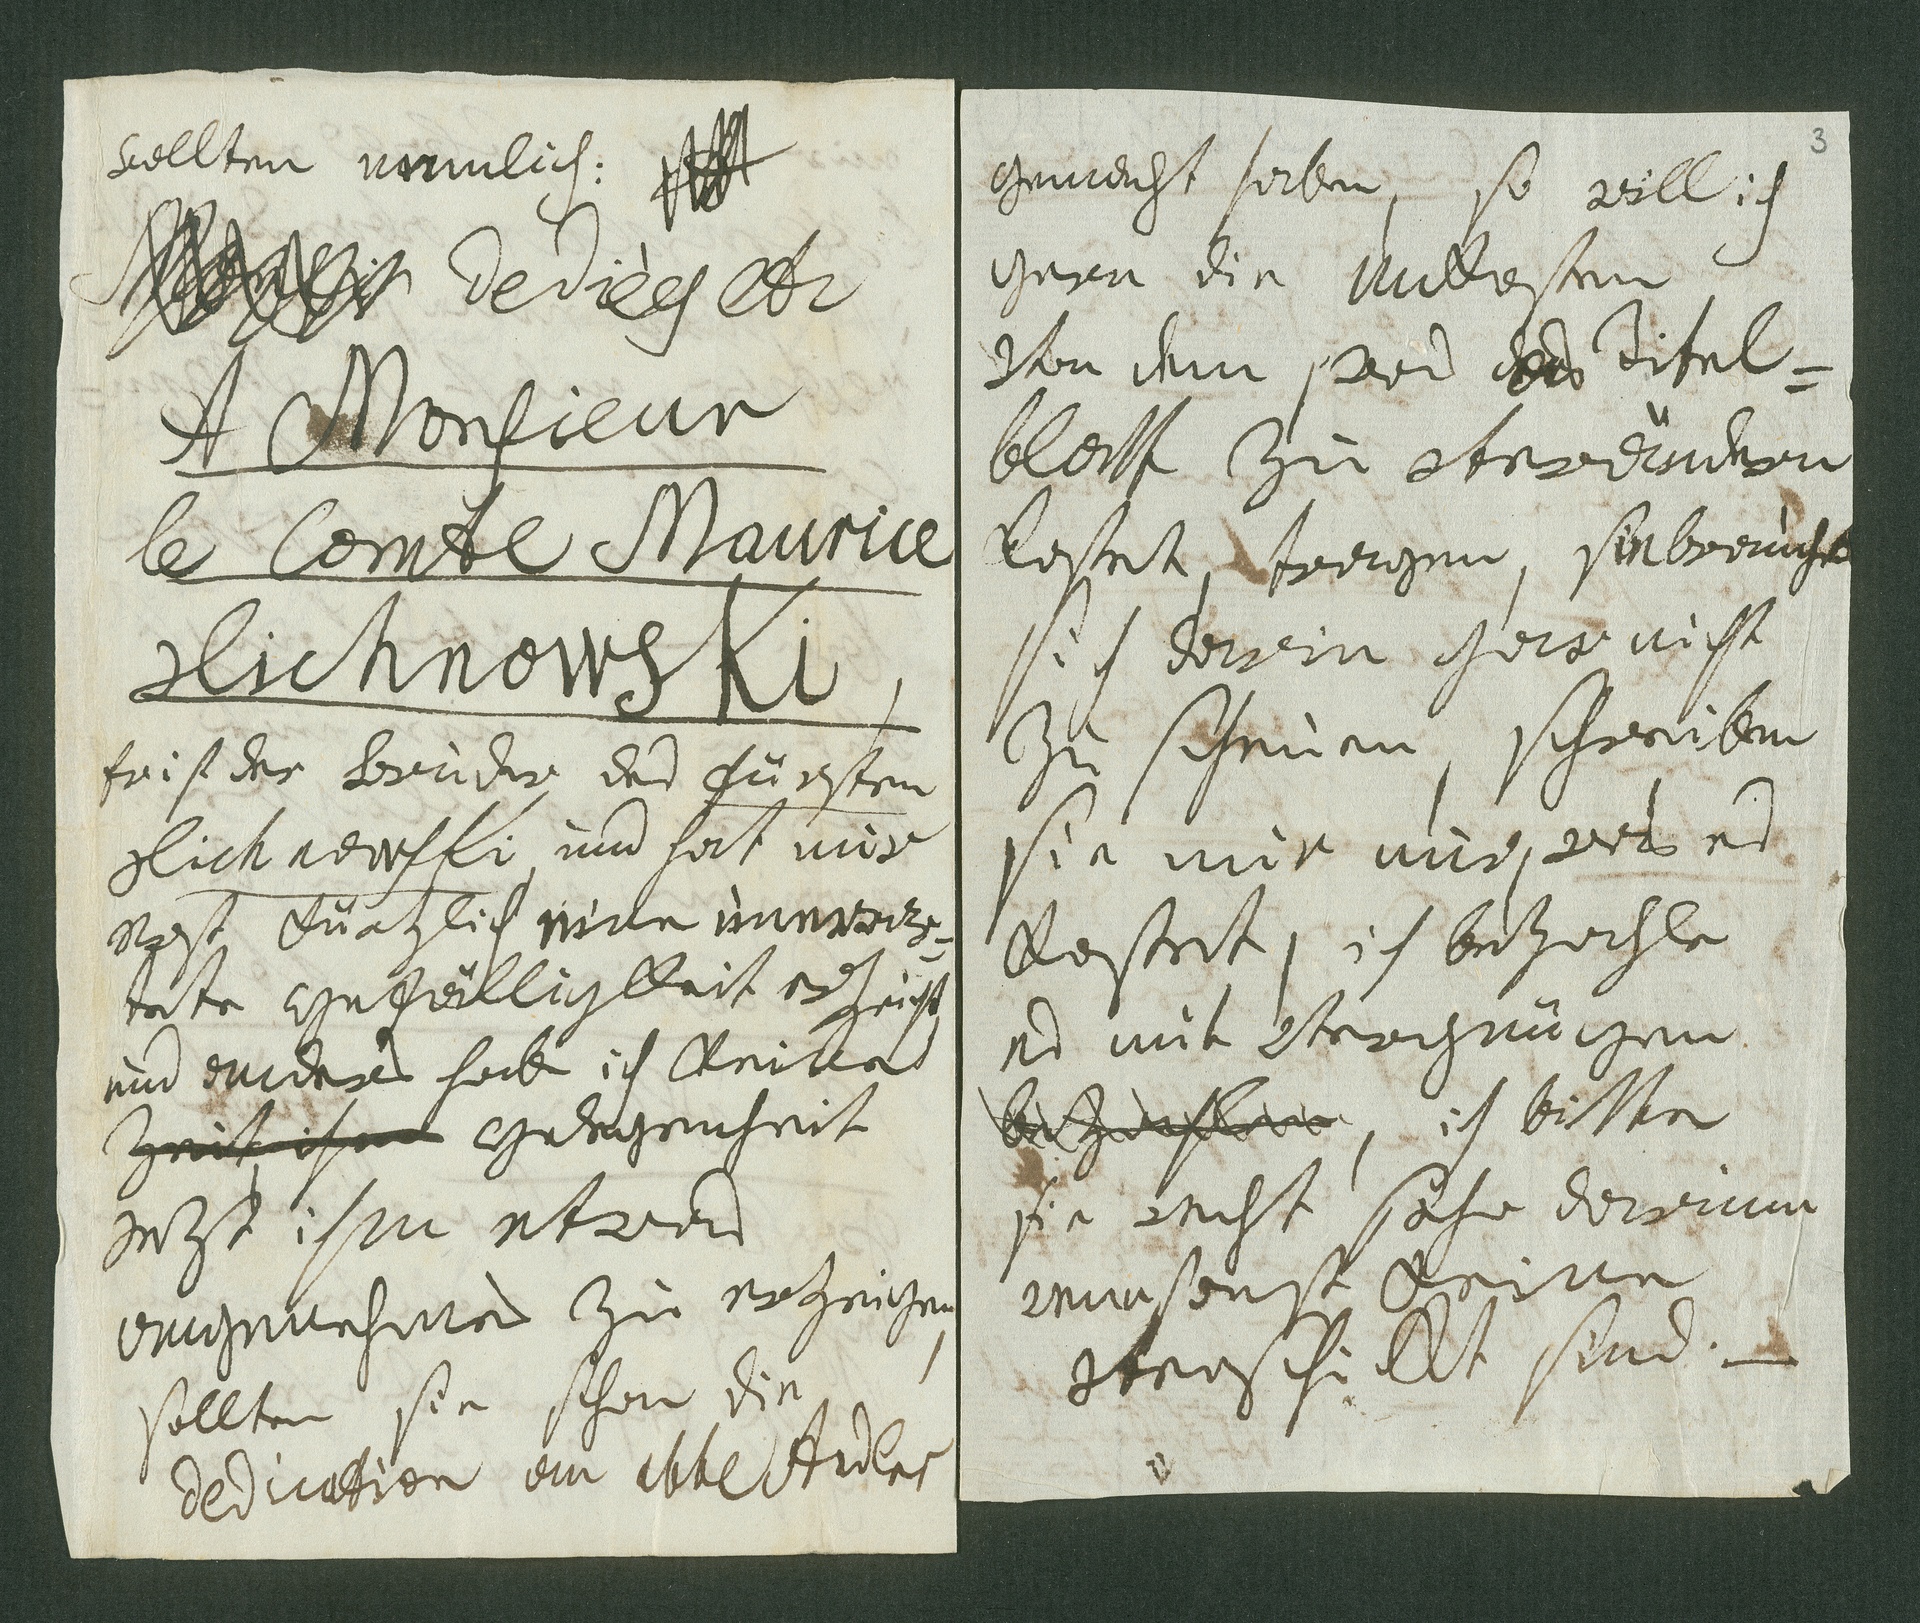 wollten nemmlich:
dediées etc
A Monsieur
le Comte Maurice
Lichnowski,
er ist der Bruder des Fürsten
Lichnowski, und hat mir
erst kürzlich eine unerwar=
tete Gefälligkeit erzeigt,
und anders habe ich keine
Zeit ihm Gelegenheit
jezt ihm etwas
angenehmes zu erzeigen,
sollten sie schon die
Dedication an abbe Stadler
3
gemacht haben, so will ich
gern die Unkosten
von dem, was das Titel=
blatt zu verändern
kostet, tragen, sie brauchen
sich darin gar nicht
zu scheuen, schreiben
sie mir nur, was es
kostet, ich bezahle
es mit Vergnügen
bezahlen, ich bitte
sie recht sehr darum
wenn sonst keine
verschikt sind. —